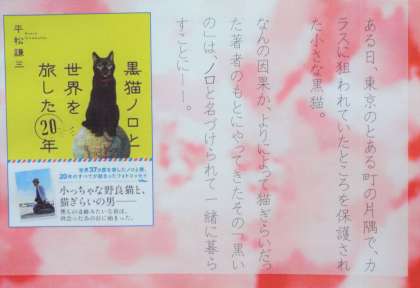 ある日、東京のとある町の片隅で、カ
ラスに狙われていたところを保護され
た小さな黒猫。
なんの因果か、よりによって猫ぎらいだっ
た著者のもとにやってきたその「黒い
の」は、ノロと名づけられて一緒に暮ら
すことに――。
黒猫ノロと
世界を
旅した20年
平松謙三
世界37カ国を旅したノロと僕、
20年のすべてが詰まったフォトエッセイ
小っちゃな野良猫と、
猫ぎらいの男――